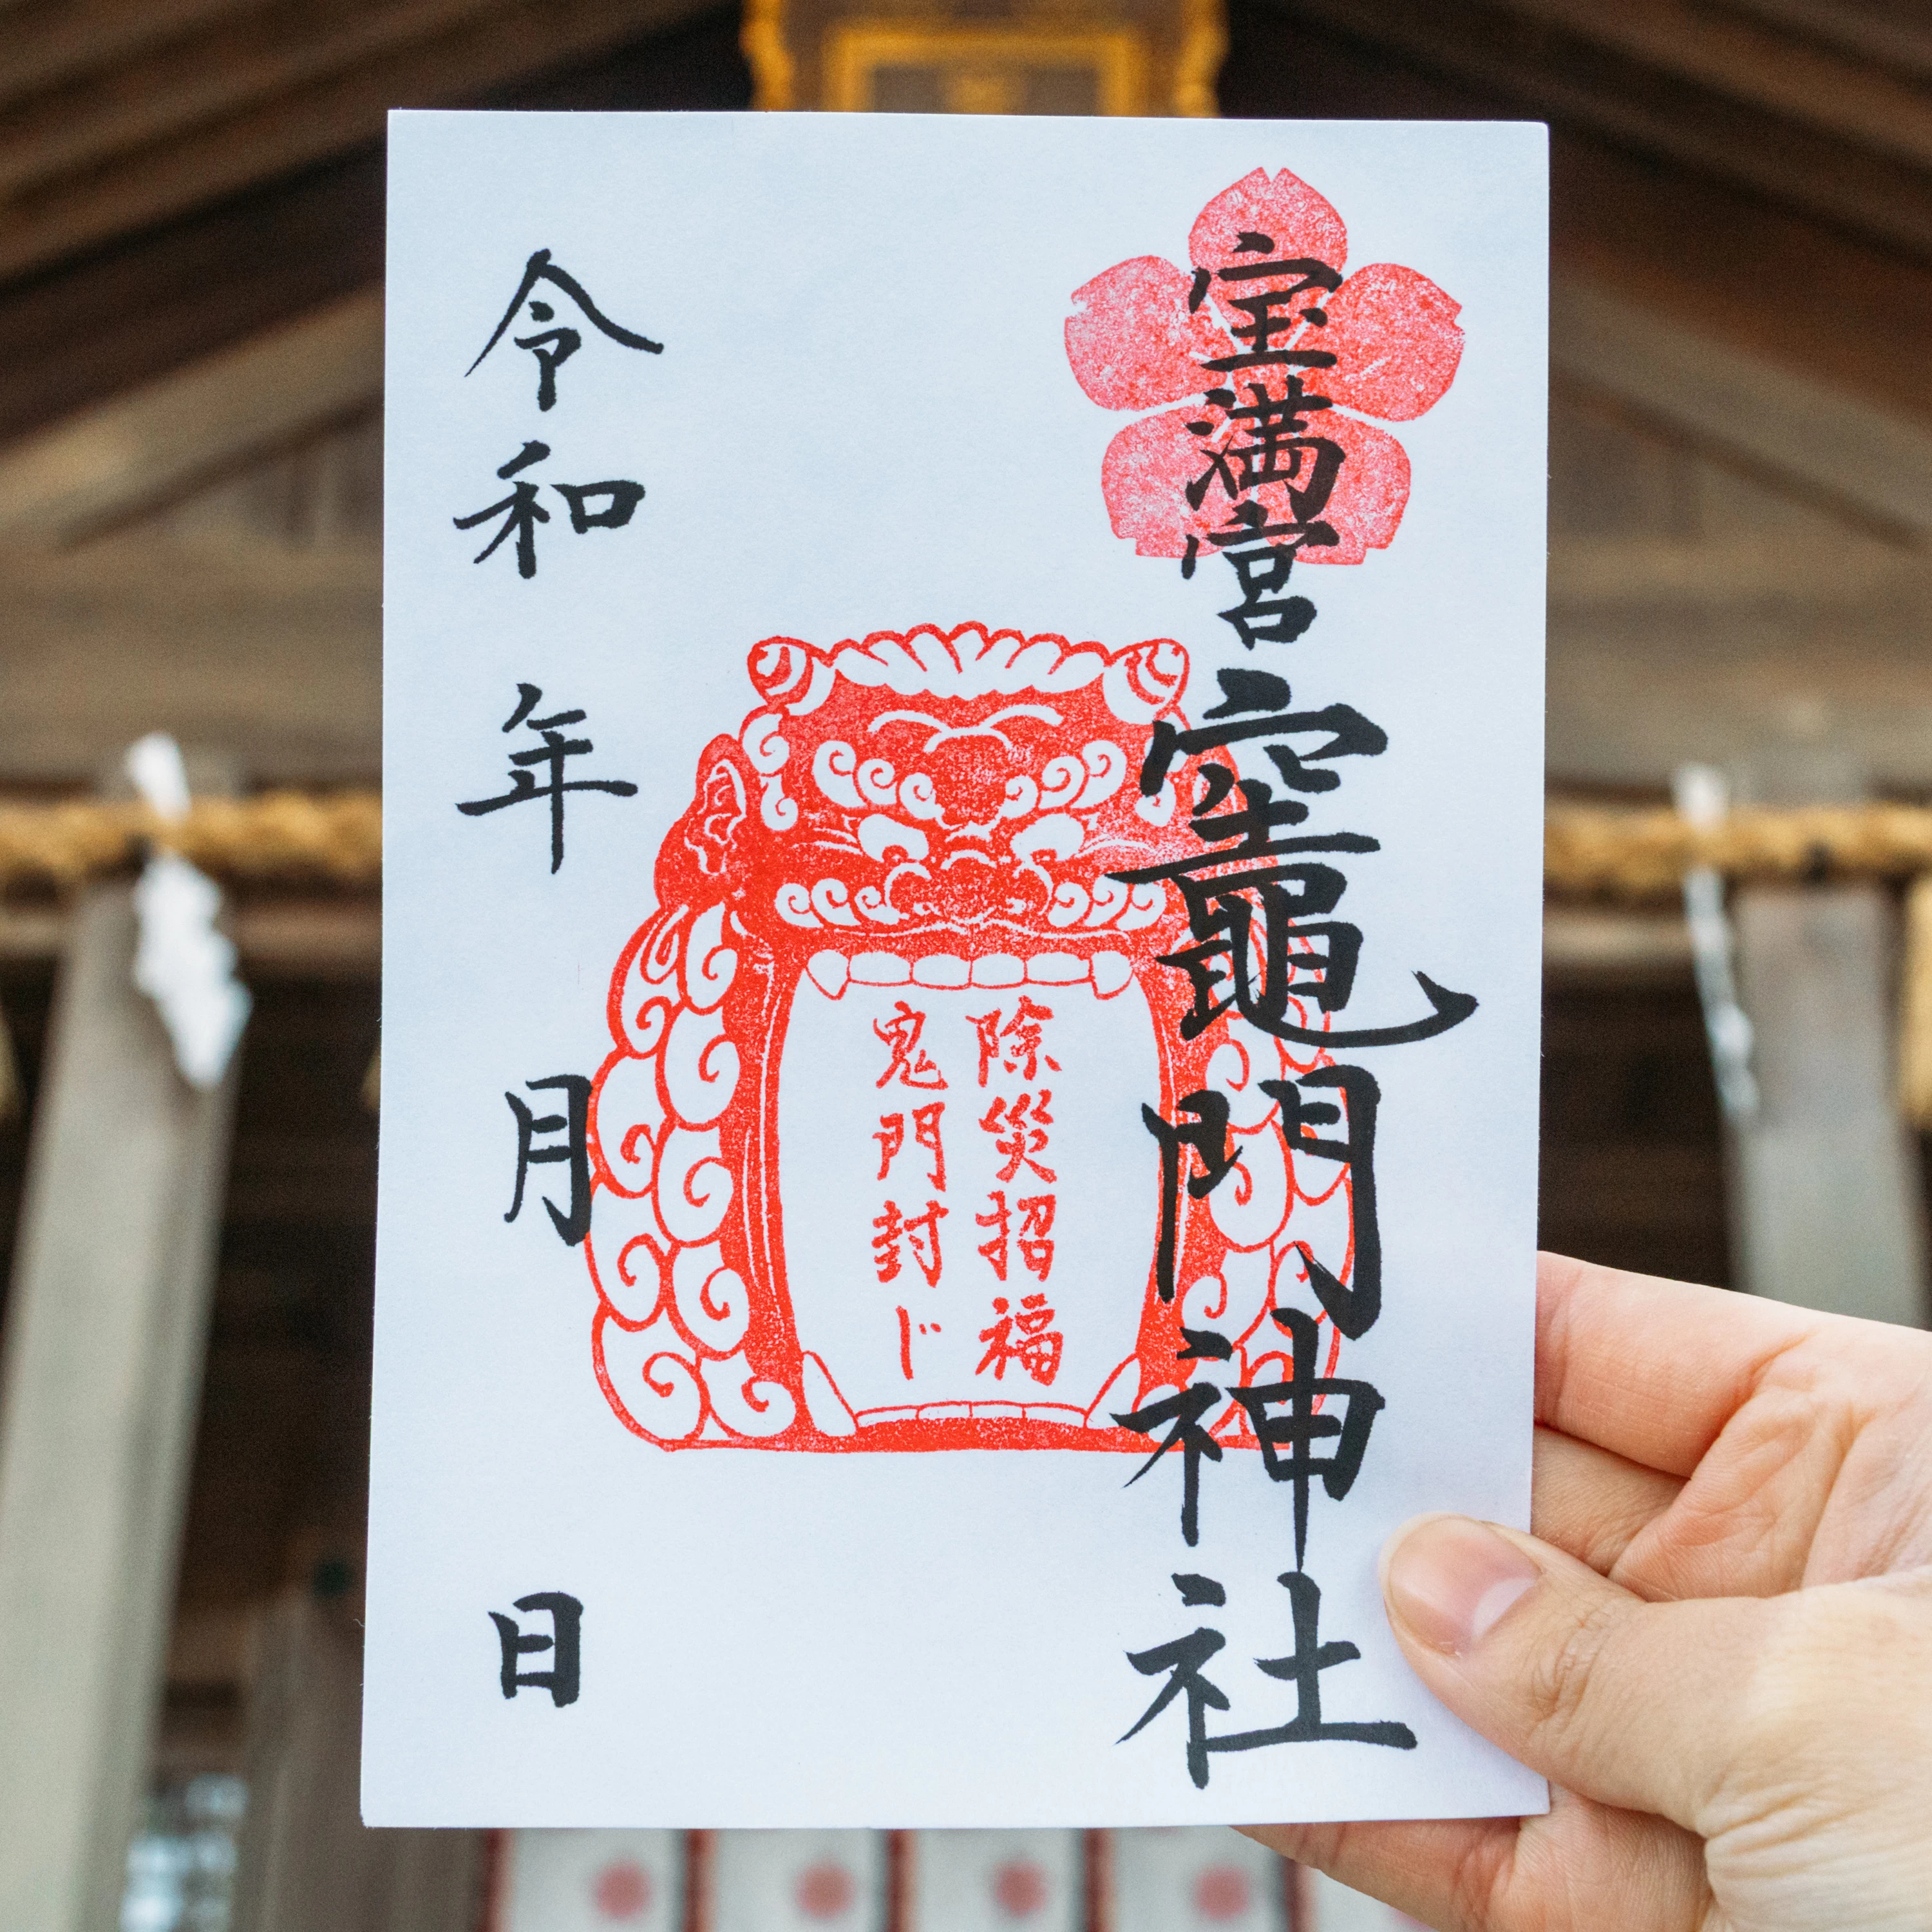 宝満宮
竈門神社
除災招福
鬼門封じ
令和 年 月 日